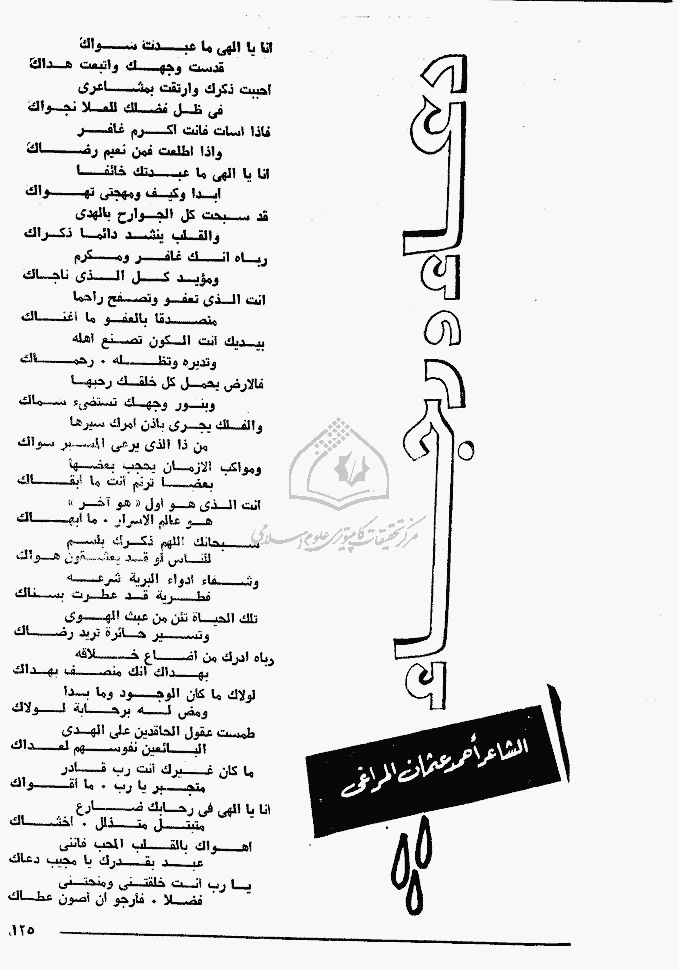 دعاء ورجاء
الشاعر أحمد عثمان المراغى
انا يا الهى ما عبدت سواك
قدست وجهك واتبعت هداك
احببت ذكرك وارتقت بمشاعرى
فى ظل فضلك للعلا نجواك
فاذا اسات فانت اكرم غافر
واذا اطلعت فمن نعيم رضاك
انا يا الهى ما عبدتك خائفا
ابدا وكيف ومهجتى تهواك
قد سبحت كل الجوارح بالهدى
والقلب ينشد دائما ذكراك
رباه انك غافر ومكرم
ومؤيد كل الذى ناجاك
انت الذى تعفو وتصفح راحما
متصدقا بالعفو ما أغناك
بيديك انت الكون تصنع اهله
وتديره وتظله . رحماك
فالارض يحمل كل خلقك رحبها
وبنور وجهك تستضىء سماك
والفلك يجرى باذن امرك سيرها
من ذا الذى يرعى المسير سواك
ومواكب الازمان يحجب بعضها
بعضا ترنم انت ما أبقاك
انت الذى هو اول « هو آخر »
هو عالم الاسرار . ما أبهاك
سبحانك اللهم ذكرك بلسم
للناس أو قد يعشقون هواك
وشفاء ادواء البرية شرعه
فطرية قد عطرت بسناك
تلك الحياة تئن من عبث الهوى
وتسير حائرة تريد رضاك
رباه ادرك من اضاع خلاقه
بهداك انك منصف بهداك
لولاك ما كان الوجود وما بدا
ومض له برحابة لولاك
طمست عقول الحاقدين على الهدى
البائعين نفوسهم لعداك
ما كان غيرك انت رب قادر
متجبر يا رب . ما أقواك
انا يا الهى فى رحابك ضارع
متبتل متذلل . أخشاك
اهواك بالقلب المحب فاننى
عبد بقدرك يا مجيب دعاك
يا رب انت خلقتنى ومنحتنى
فضلا . فأرجو أن أصون عطاك
١٢٥
مركز تحقيقات كامپيوترى علوم اسلامى